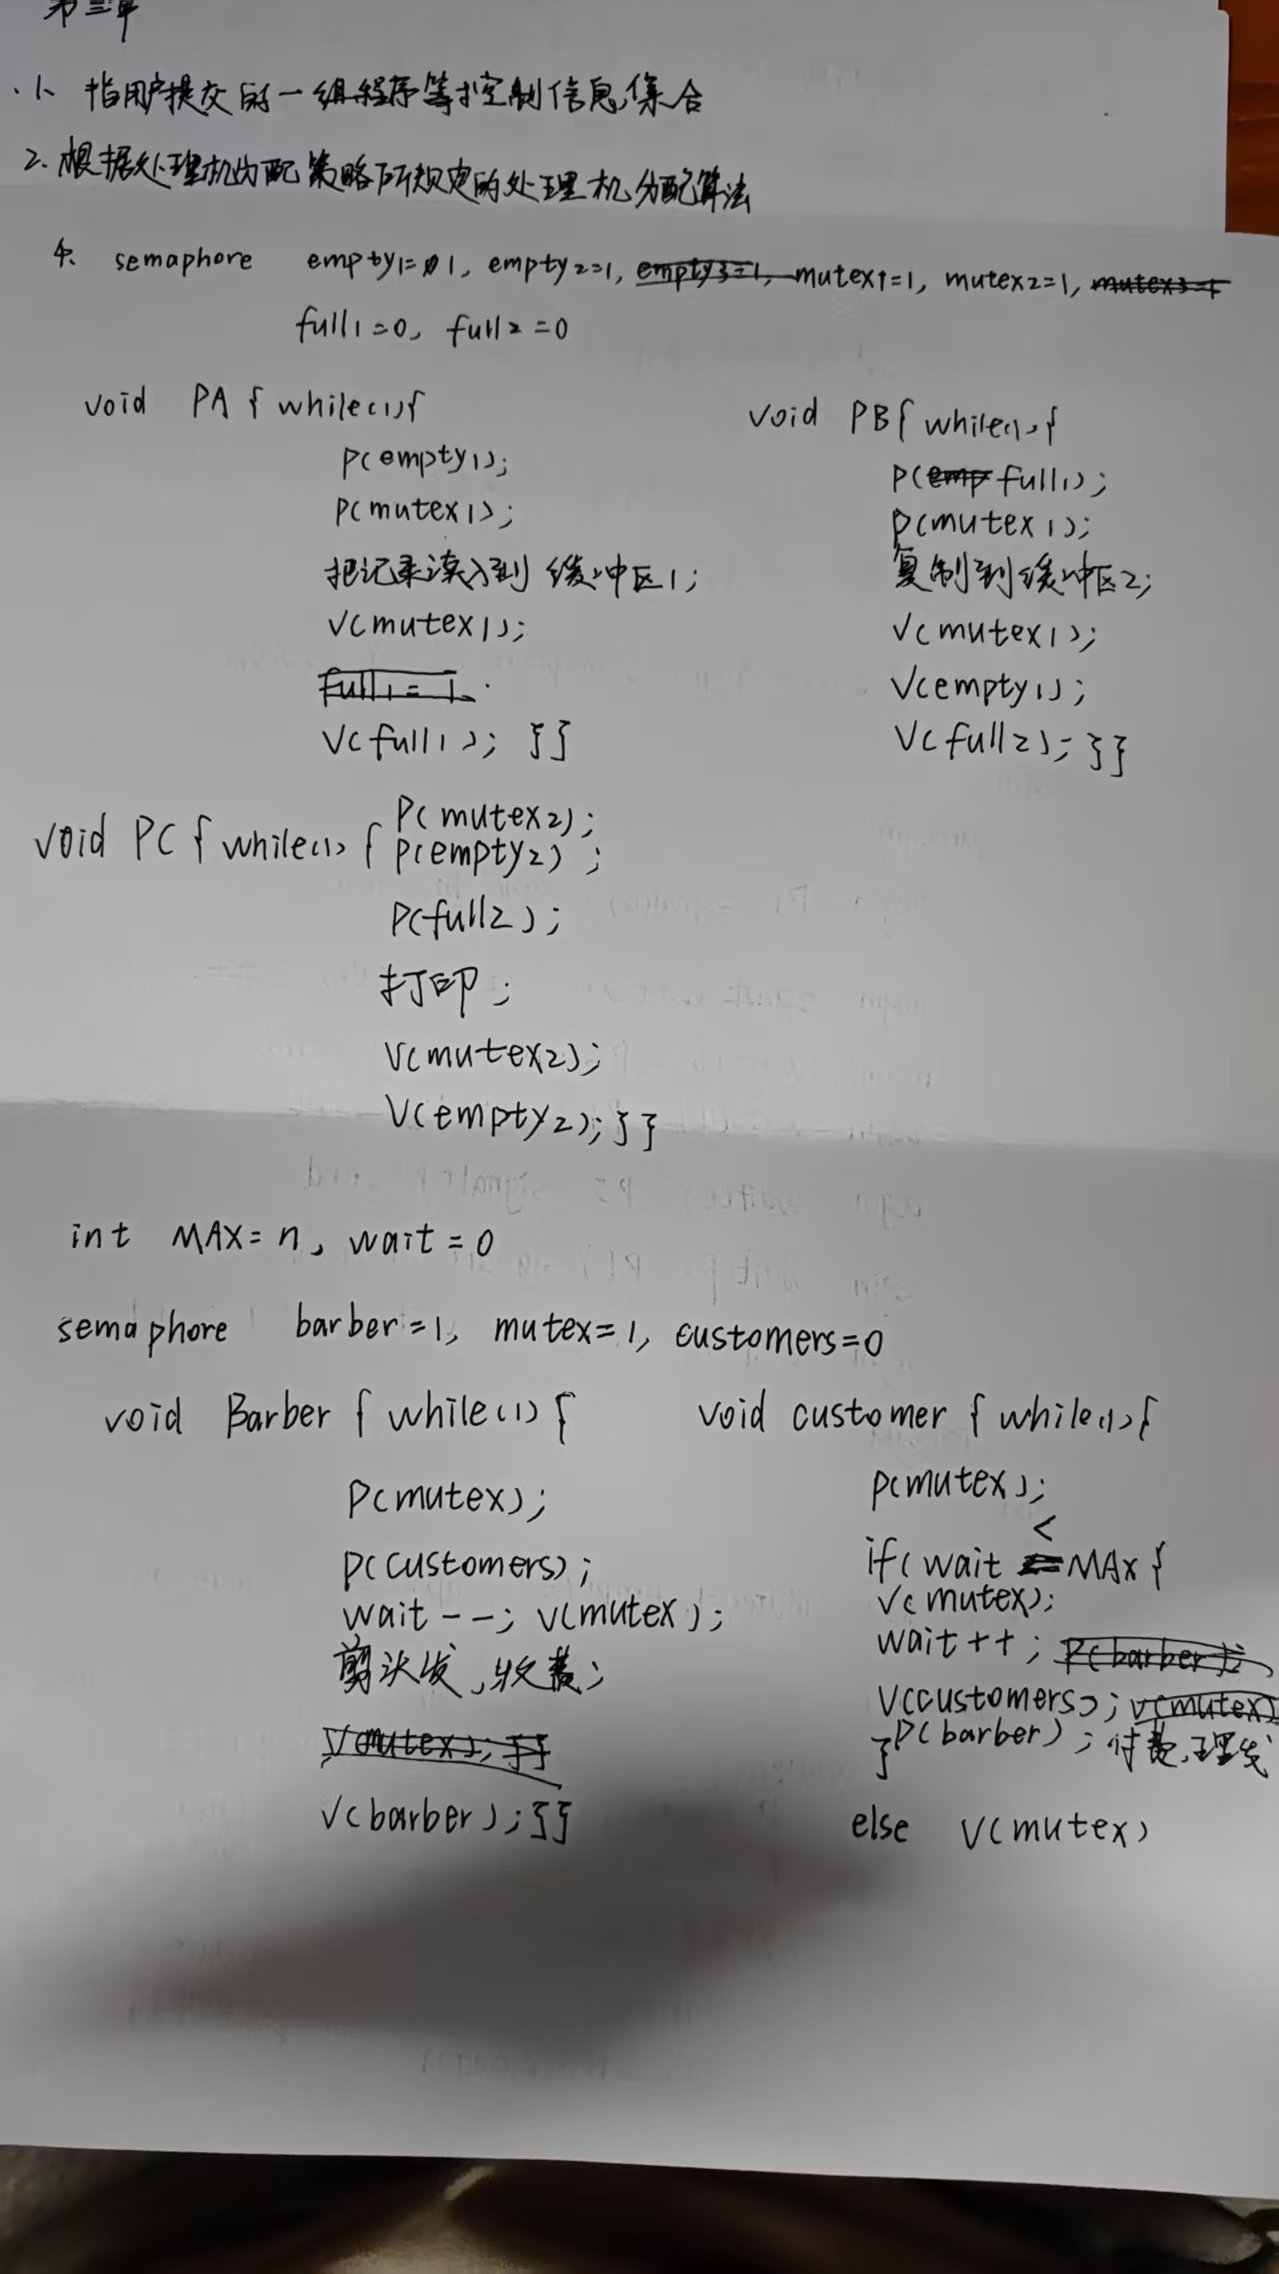 第三章
1、指用户提交的一组程序等控制信息集合
2.根据处理机分配策略所规定的处理机分配算法
4、 semaphore empty1=1, empty2=1, empty3=1, mutex1=1, mutex2=1, mutex3=1
full1=0, full2=0
void PA{while(1){
P(empty1);
P(mutex1);
把记录读入到缓冲区1;
V(mutex1);
full1=1、
V(full1); }}
void PB{while(1){
P(emp full1);
P(mutex1);
复制到缓冲区2;
V(mutex1);
V(empty1);
V(full2);}}
void PC{while(1){
P(mutex2);
P(empty2);
P(full2);
打印;
V(mutex2);
V(empty2);}}
int MAX=n, wait=0
semaphore barber=1, mutex=1, customers=0
void Barber{while(1){
P(mutex);
P(customers);
wait--; V(mutex);
剪头发,收费;
V(mutex);}}
V(barber);}}
void customer{while(1){
P(mutex);
if(wait < MAX{
V(mutex);
wait++; P(barber);
V(customers); V(mutex)
}P(barber);付费,理发
else V(mutex)